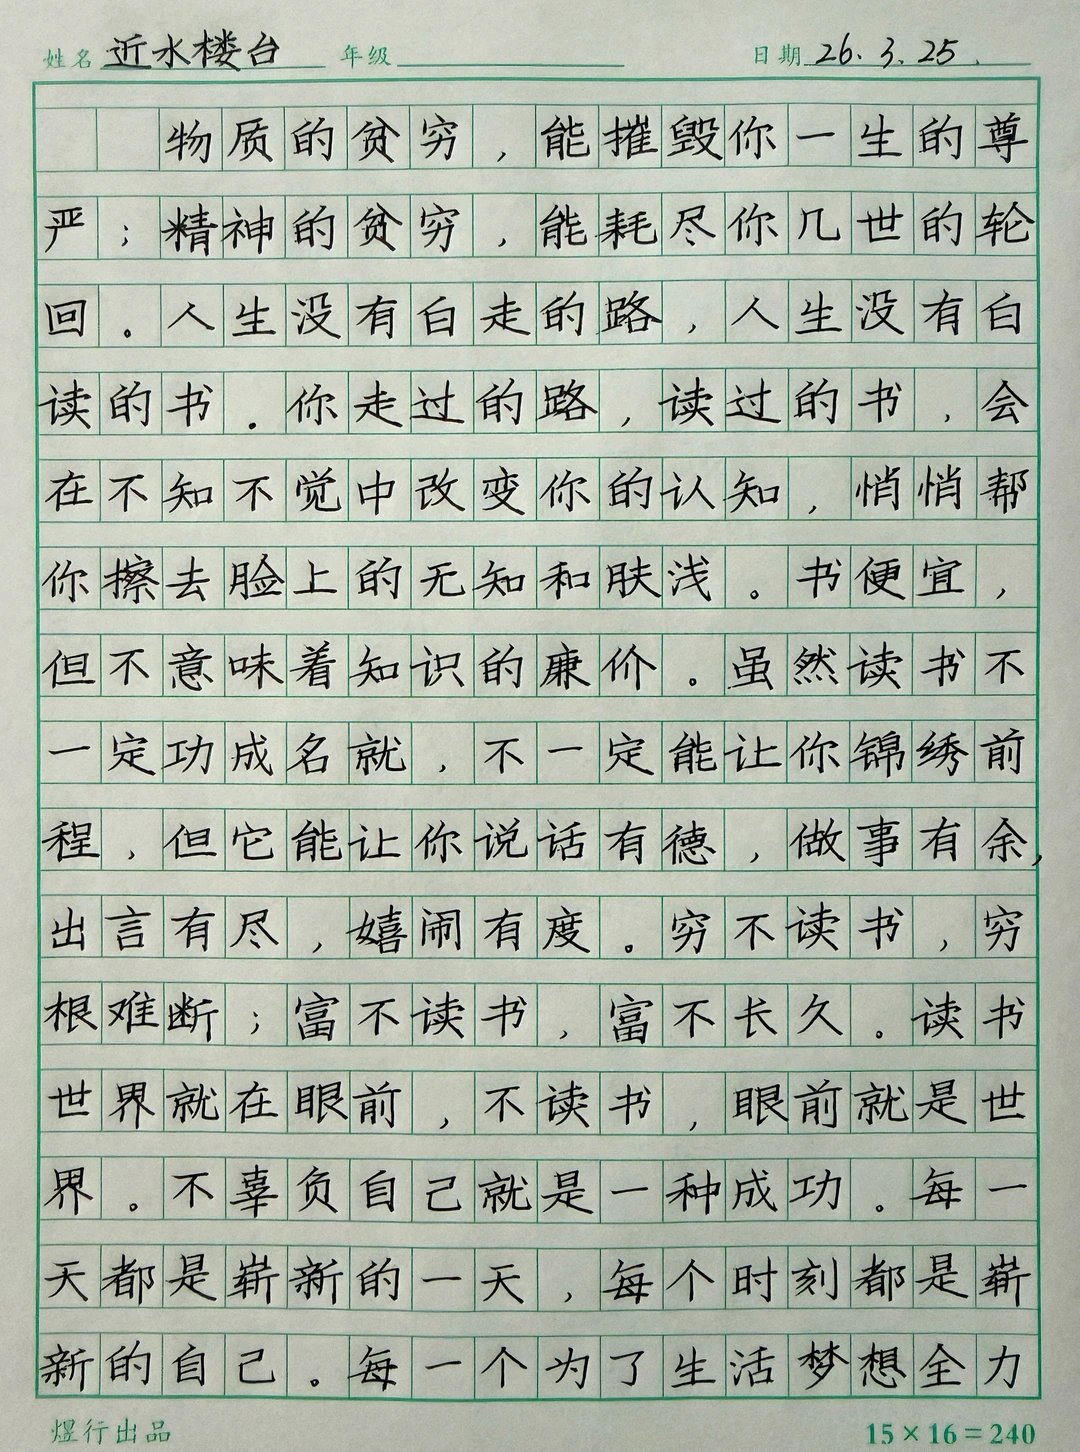 姓名 近水楼台 年级 日期 26.3.25.
物质的贫穷，能摧毁你一生的尊
严；精神的贫穷，能耗尽你几世的轮
回。人生没有白走的路，人生没有白
读的书．你走过的路，读过的书，会
在不知不觉中改变你的认知，悄悄帮
你擦去脸上的无知和肤浅。书便宜，
但不意味着知识的廉价。虽然读书不
一定功成名就，不一定能让你锦绣前
程，但它能让你说话有德，做事有余，
出言有尽，嬉闹有度。穷不读书，穷
根难断；富不读书，富不长久。读书
世界就在眼前，不读书，眼前就是世
界。不辜负自己就是一种成功。每一
天都是崭新的一天，每个时刻都是崭
新的自己。每一个为了生活梦想全力
煜行出品 15×16=240